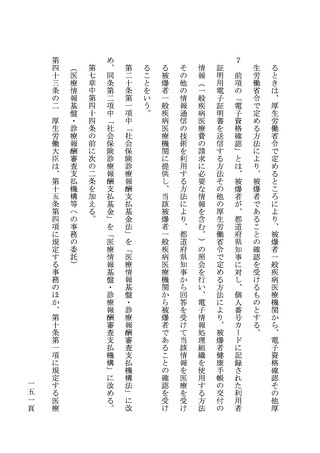 るときは、厚生労働省令で定めるところにより、被爆者一般疾病医療機関から、電子資格確認その他厚
生労働省令で定める方法により、被爆者であることの確認を受けるものとする。
７　前項の「電子資格確認」とは、被爆者が、都道府県知事に対し、個人番号カードに記録された利用者
証明用電子証明書を送信する方法その他の厚生労働省令で定める方法により、被爆者健康手帳の交付の
情報（一般疾病医療費の請求に必要な情報を含む。）の照会を行い、電子情報処理組織を使用する方法
その他の情報通信の技術を利用する方法により、都道府県知事から回答を受けて当該情報を医療を受け
る被爆者一般疾病医療機関に提供し、当該被爆者一般疾病医療機関から被爆者であることの確認を受け
ることをいう。
第二十条第一項中「社会保険診療報酬支払基金法」を「医療情報基盤・診療報酬審査支払機構法」に改
め、同条第二項中「社会保険診療報酬支払基金」を「医療情報基盤・診療報酬審査支払機構」に改める。
第七章中第四十四条の前に次の二条を加える。
（医療情報基盤・診療報酬審査支払機構等への事務の委託）
第四十三条の二　厚生労働大臣は、第十五条第四項に規定する事務のほか、第十条第一項に規定する医療
一五一頁